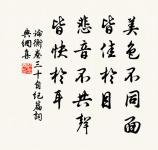 美色不同面
皆佳於目
悲音不共聲
皆快於耳
論衡卷三十自紀篇詞
典網喜